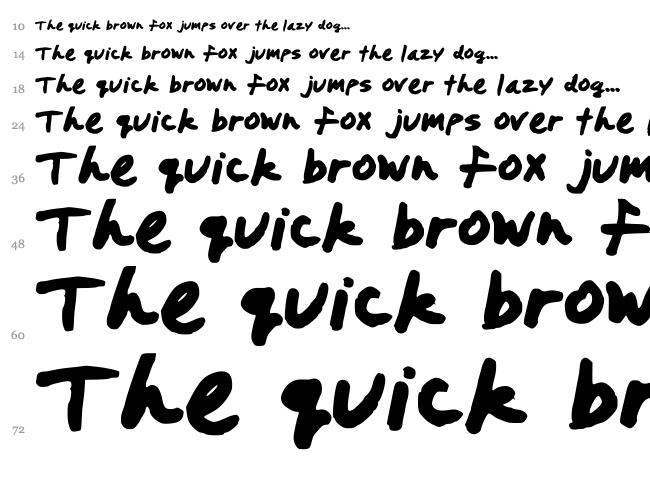 10 The quick brown fox jumps over the lazy dog...
14 The quick brown fox jumps over the lazy dog...
18 The quick brown fox jumps over the lazy dog...
24 The quick brown fox jumps over the l
36 The quick brown fox jum
48 The quick brown f
60 The quick brow
72 The quick br